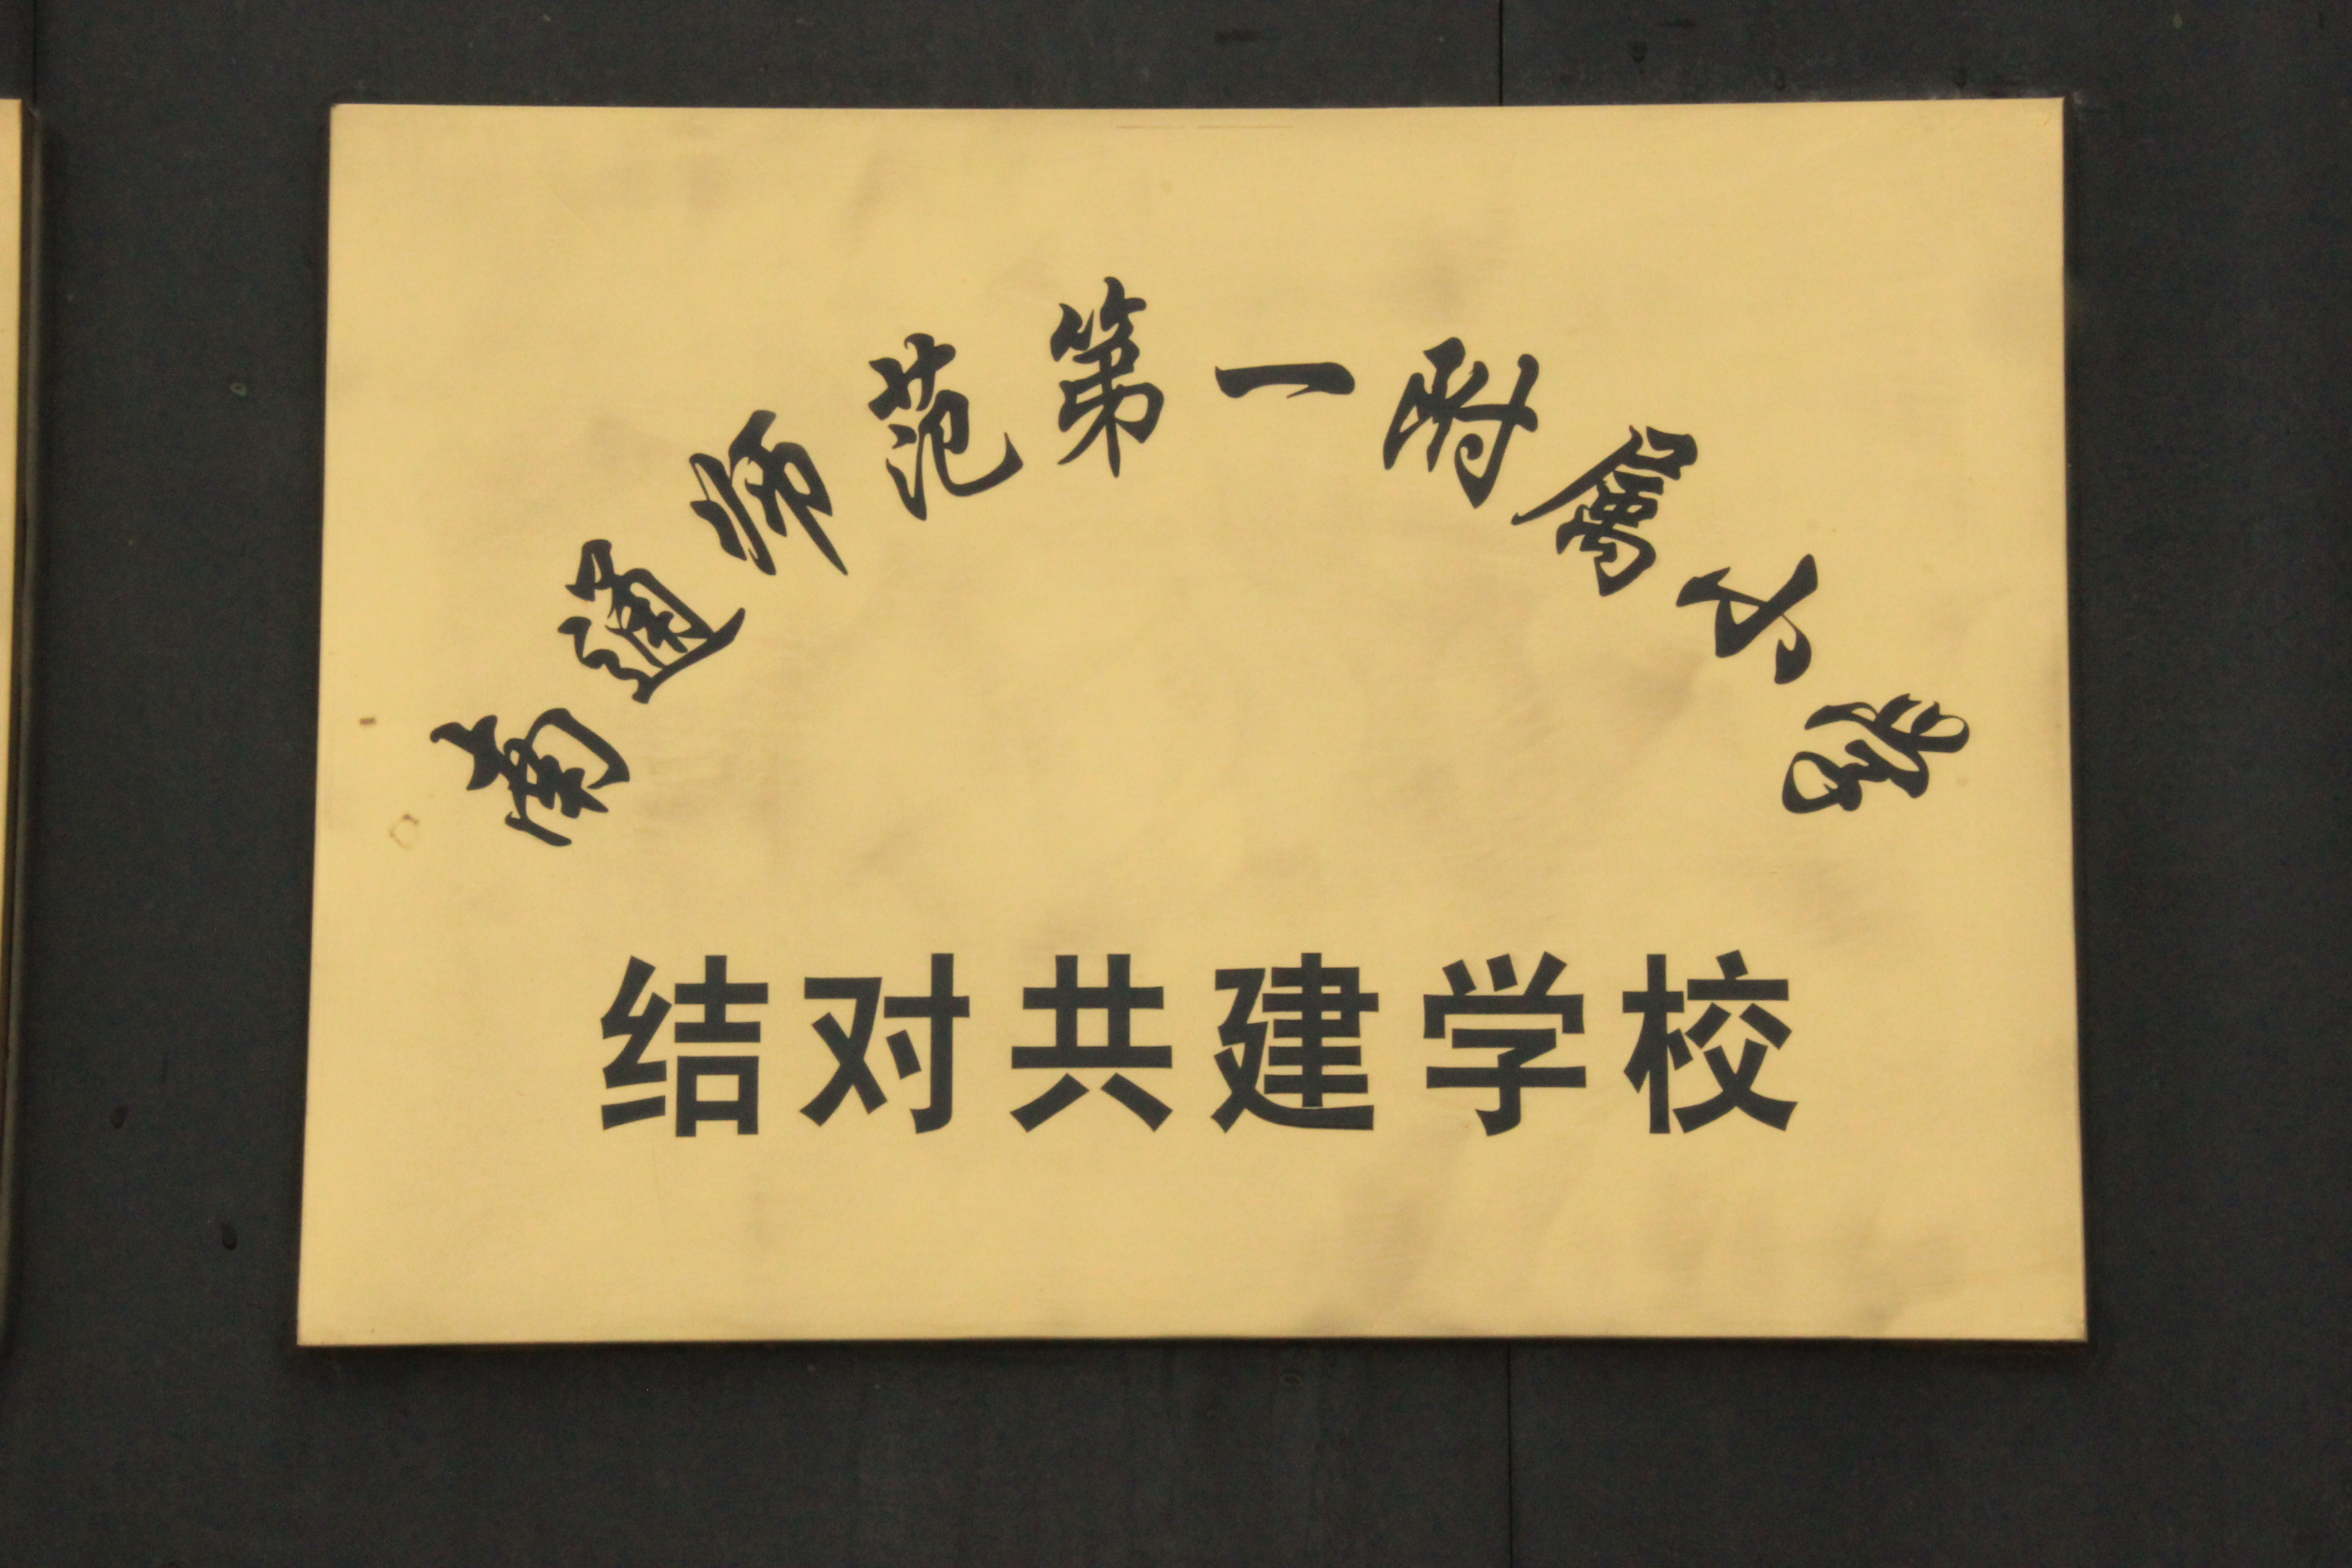 南通师范第一附属小学
结对共建学校